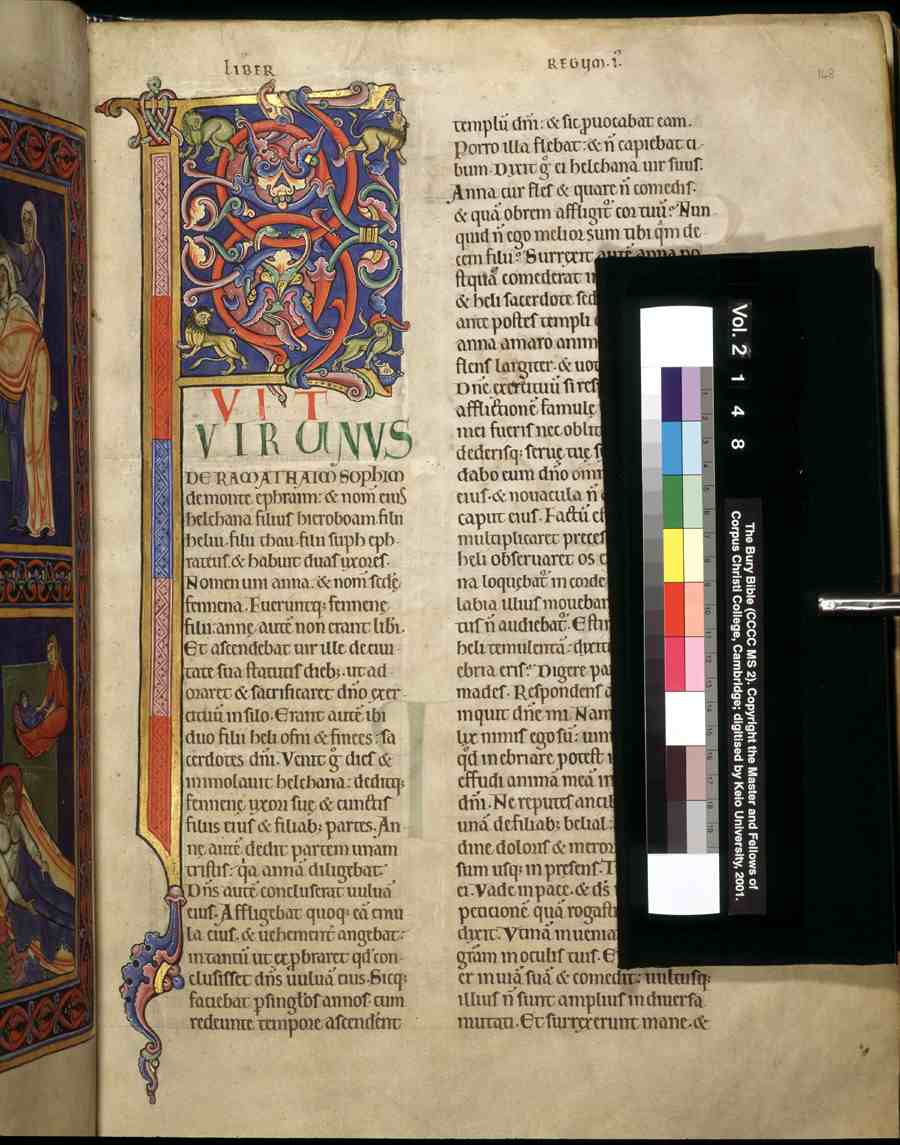 LIBER
REGUM. I.
148
VIT
VIR UNUS
DE RAMATHAIM SOPhIM
de monte ephraim: & nom̄ eius
helchana filius hieroboam. filii
heliu. filii thau. filii suph eph-
rateus & habuit duas uxores.
Nomen uni anna. & nom̄ scdę
fennena. Fueruntq; fennene
filii: anne autē non erant libi.
Et ascendebat uir ille de ciui-
tate sua statutis dieb;. ut ad
oraret & sacrificaret dn̄o exer-
cituū in silo. Erant autē ibi
duo filii heli ofni & finees: sa
cerdotes dn̄i. Venit g̊ dies &
immolauit helchana: deditq;
fennenę uxori suę & cunctis
filiis eius & filiab; partes. An-
ne autē dedit partem unam
tristis: q̇a annā diligebat.
Dn̄s autē concluserat uuluā
eius. Affligebat quoq; eā emu
la eius. & uehement̄ angebat:
intantū ut exp̱braret qd̄ con-
clusisset dn̄s uuluā eius. Sicq;
faciebat p̱ singłos annos cum
redeunte tempore ascendent̄
templū dn̄i: & sic p̱uocabat eam.
Porro illa flebat: & n̄ capiebat ci-
bum. Dixit g̊ ei helchana uir suus.
Anna cur fles & quare n̄ comedis.
& quā obrem affligit̄ cor tuū? Nun
quid n̄ ego melior sum tibi q̄m de
cem filii? Surrexit autē anna po
stquā comederat
& heli sacerdote
ante postes templi
anna amaro
flens largiter. &
Dn̄e exercituū si
afflictionē famulę
mei fueris nec
dederisq; seruę tuę
dabo eum dn̄o
eius. & nouacula n̄
caput eius. Factū
multiplicaret preces
heli obseruaret os
na loquebat̄ in corde
labia illius
tus n̄ audiebat̄.
heli temulentā: dixit
ebria eris? Digere
mades. Respondens
inquit dn̄e mi. Nam
lix nimis ego sū: uinū
qd̄ inebriare potest
effudi animā meā
dn̄i. Ne reputes
unā de filiab; belial:
dine doloris & meroris
sum usq; in presens.
ei. Vade in pace. & ds̄
peticionē quā
dixit. Vtinā
gr̄am in oculis tuis.
er in uiā suā & comedit: uultusq;
illius n̄ sunt amplius in diuersa
mutati. Et surrexerunt mane. &
Vol. 2 1 4 8
The Bury Bible (CCCC MS 2). Copyright the Master and Fellows of
Corpus Christi College, Cambridge; digitised by Keio University, 2001.